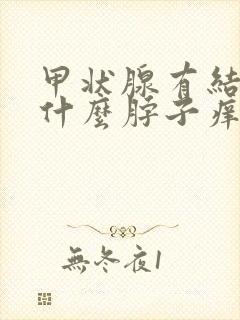 甲状腺有結
什麼脖子痒
無冬夜1